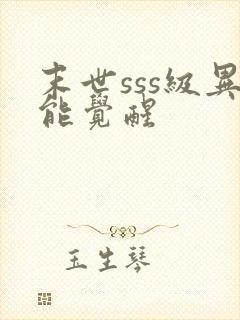 末世sss級異
能覺醒
玉生琴